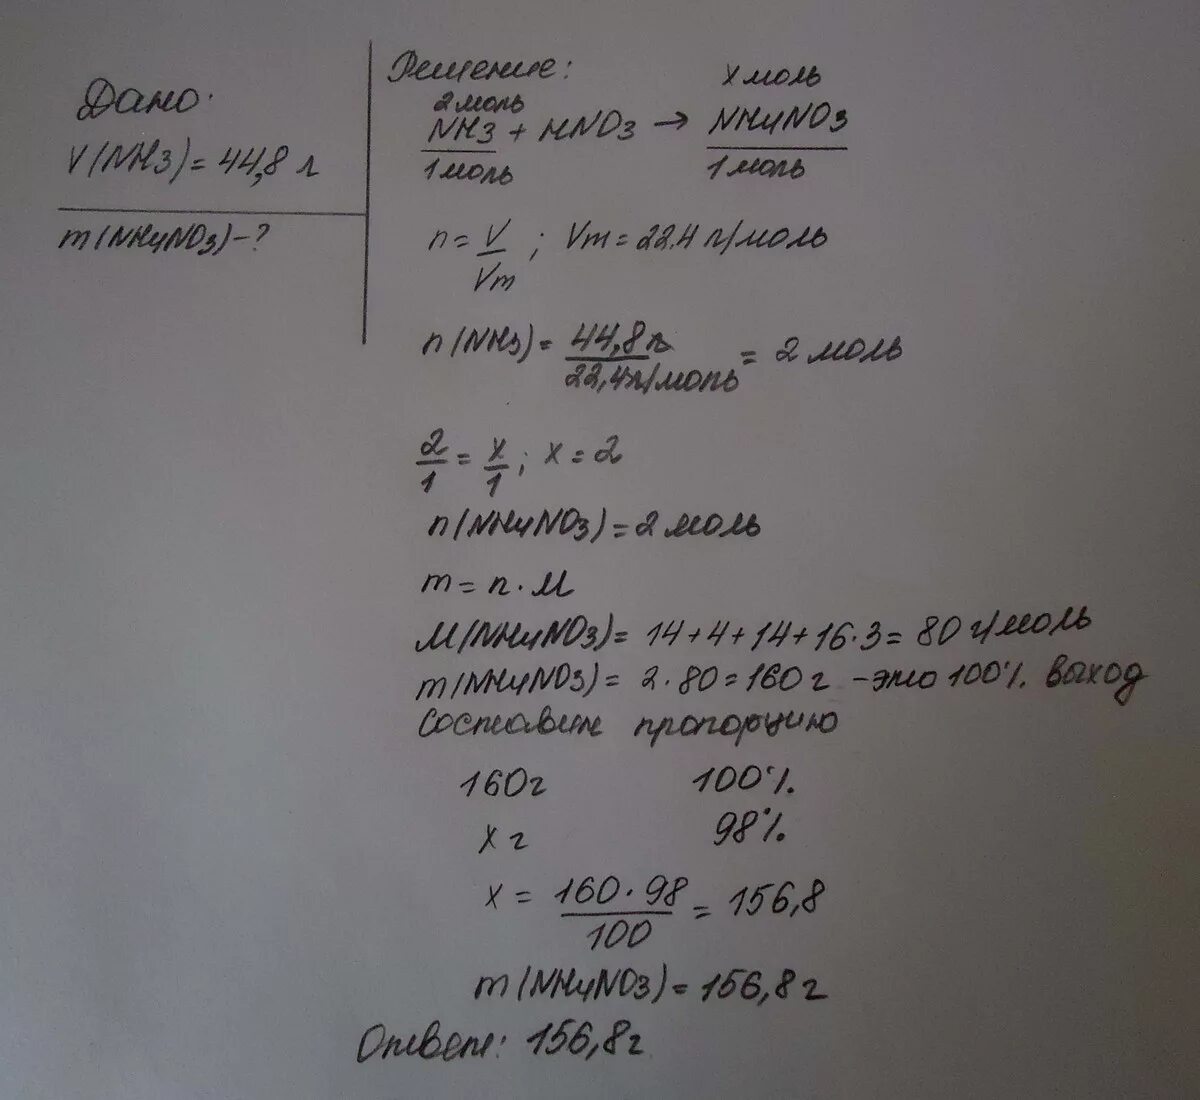 Дано:
V(NH3) = 44,8 л
m(NH4NO3) - ?
Решение:
2 моль x моль
NH3 + HNO3 → NH4NO3
1 моль 1 моль
n = V/Vm ; Vm = 22,4 л/моль
n(NH3) = 44,8 л / 22,4 л/моль = 2 моль
2/1 = x/1 ; x = 2
n(NH4NO3) = 2 моль
m = n · M
M(NH4NO3) = 14 + 4 + 14 + 16 · 3 = 80 г/моль
m(NH4NO3) = 2 · 80 = 160 г - это 100% выход
Составим пропорцию
160 г 100%
x г 98%
x = 160 · 98 / 100 = 156,8
m(NH4NO3) = 156,8 г
Ответ: 156,8 г